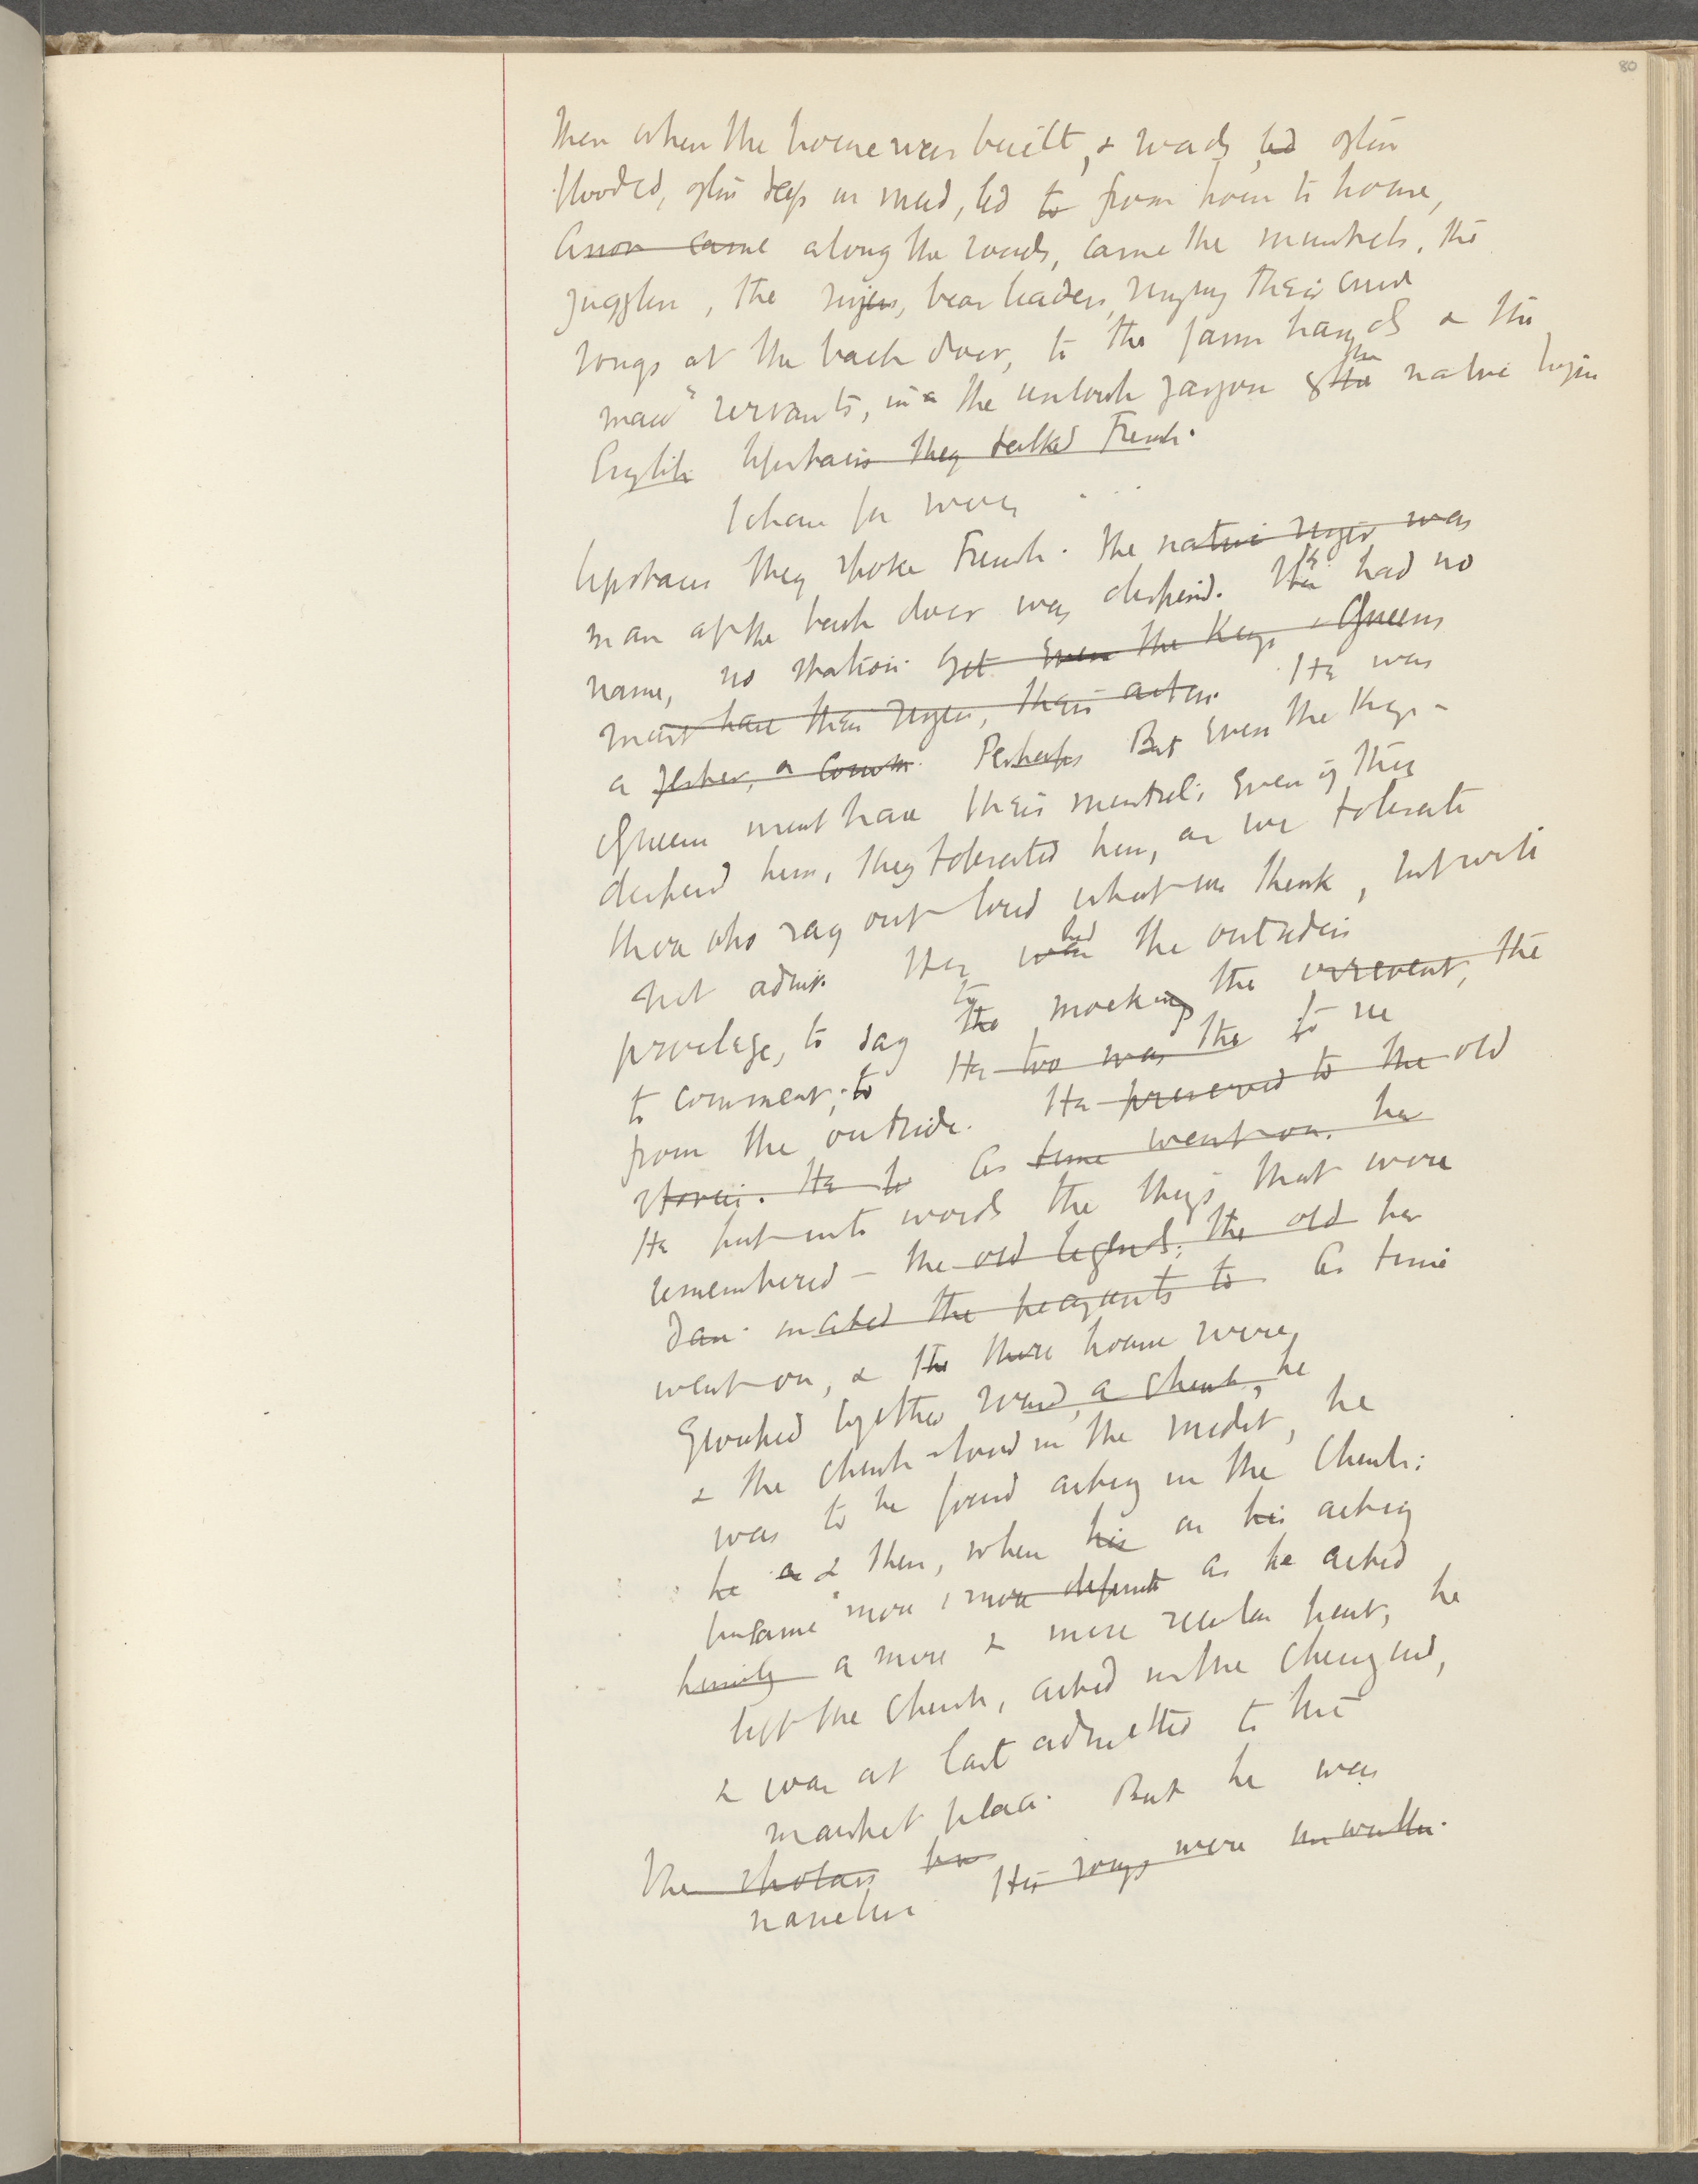 80
Then when the house was built, & roads, led often
flooded, often deep in mud, led to from house to house,
Anon came along the roads, came the minstrels, the
jugglers, the singers, bear leaders, singing their crude
songs at the back door, to the farm hands & the
maid servants, in a the uncouth jargon of the the native tongue
English Upstairs they talked French.
I chan for wery . . .
Upstairs they spoke French. The native singer was
man at the back door was despised. He He had no
name, no station. Yet Even the Kings & Queens
must have their singers, their actors. He was
a jester, a Perhaps But Even the Kings &
Queens must have their minstrel; Even if they
despised him, they tolerated him, as we tolerate
those who say out loud what we think, but will
not admit. He was had the outsiders
privilege, to say the to mocking the irreverent, the
to comment; to He too was the to see
from the outside. He preserved to the old
stories. He to As time went on, he
He put into words the things that were
remembered — the old legends; the old he
Dan. mated the peasants to As time
went on, & the these houses were
Grouped together round a church, he
& the church stood in the midst, he
was to be found acting in the Church:
he a & then, when his as his acting
became more & more definite as he acted
himself a more & more secular part, he
left the Church, acted in the Churchyard,
& was at last admitted to the
market place. But he was
The scholars his
nameless His songs were unwritten.